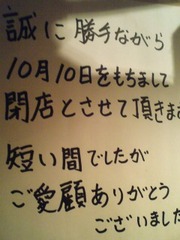 誠に勝手ながら
10月10日をもちまして
閉店とさせて頂きま
短い間でしたが
ご愛顧ありがとう
ございました